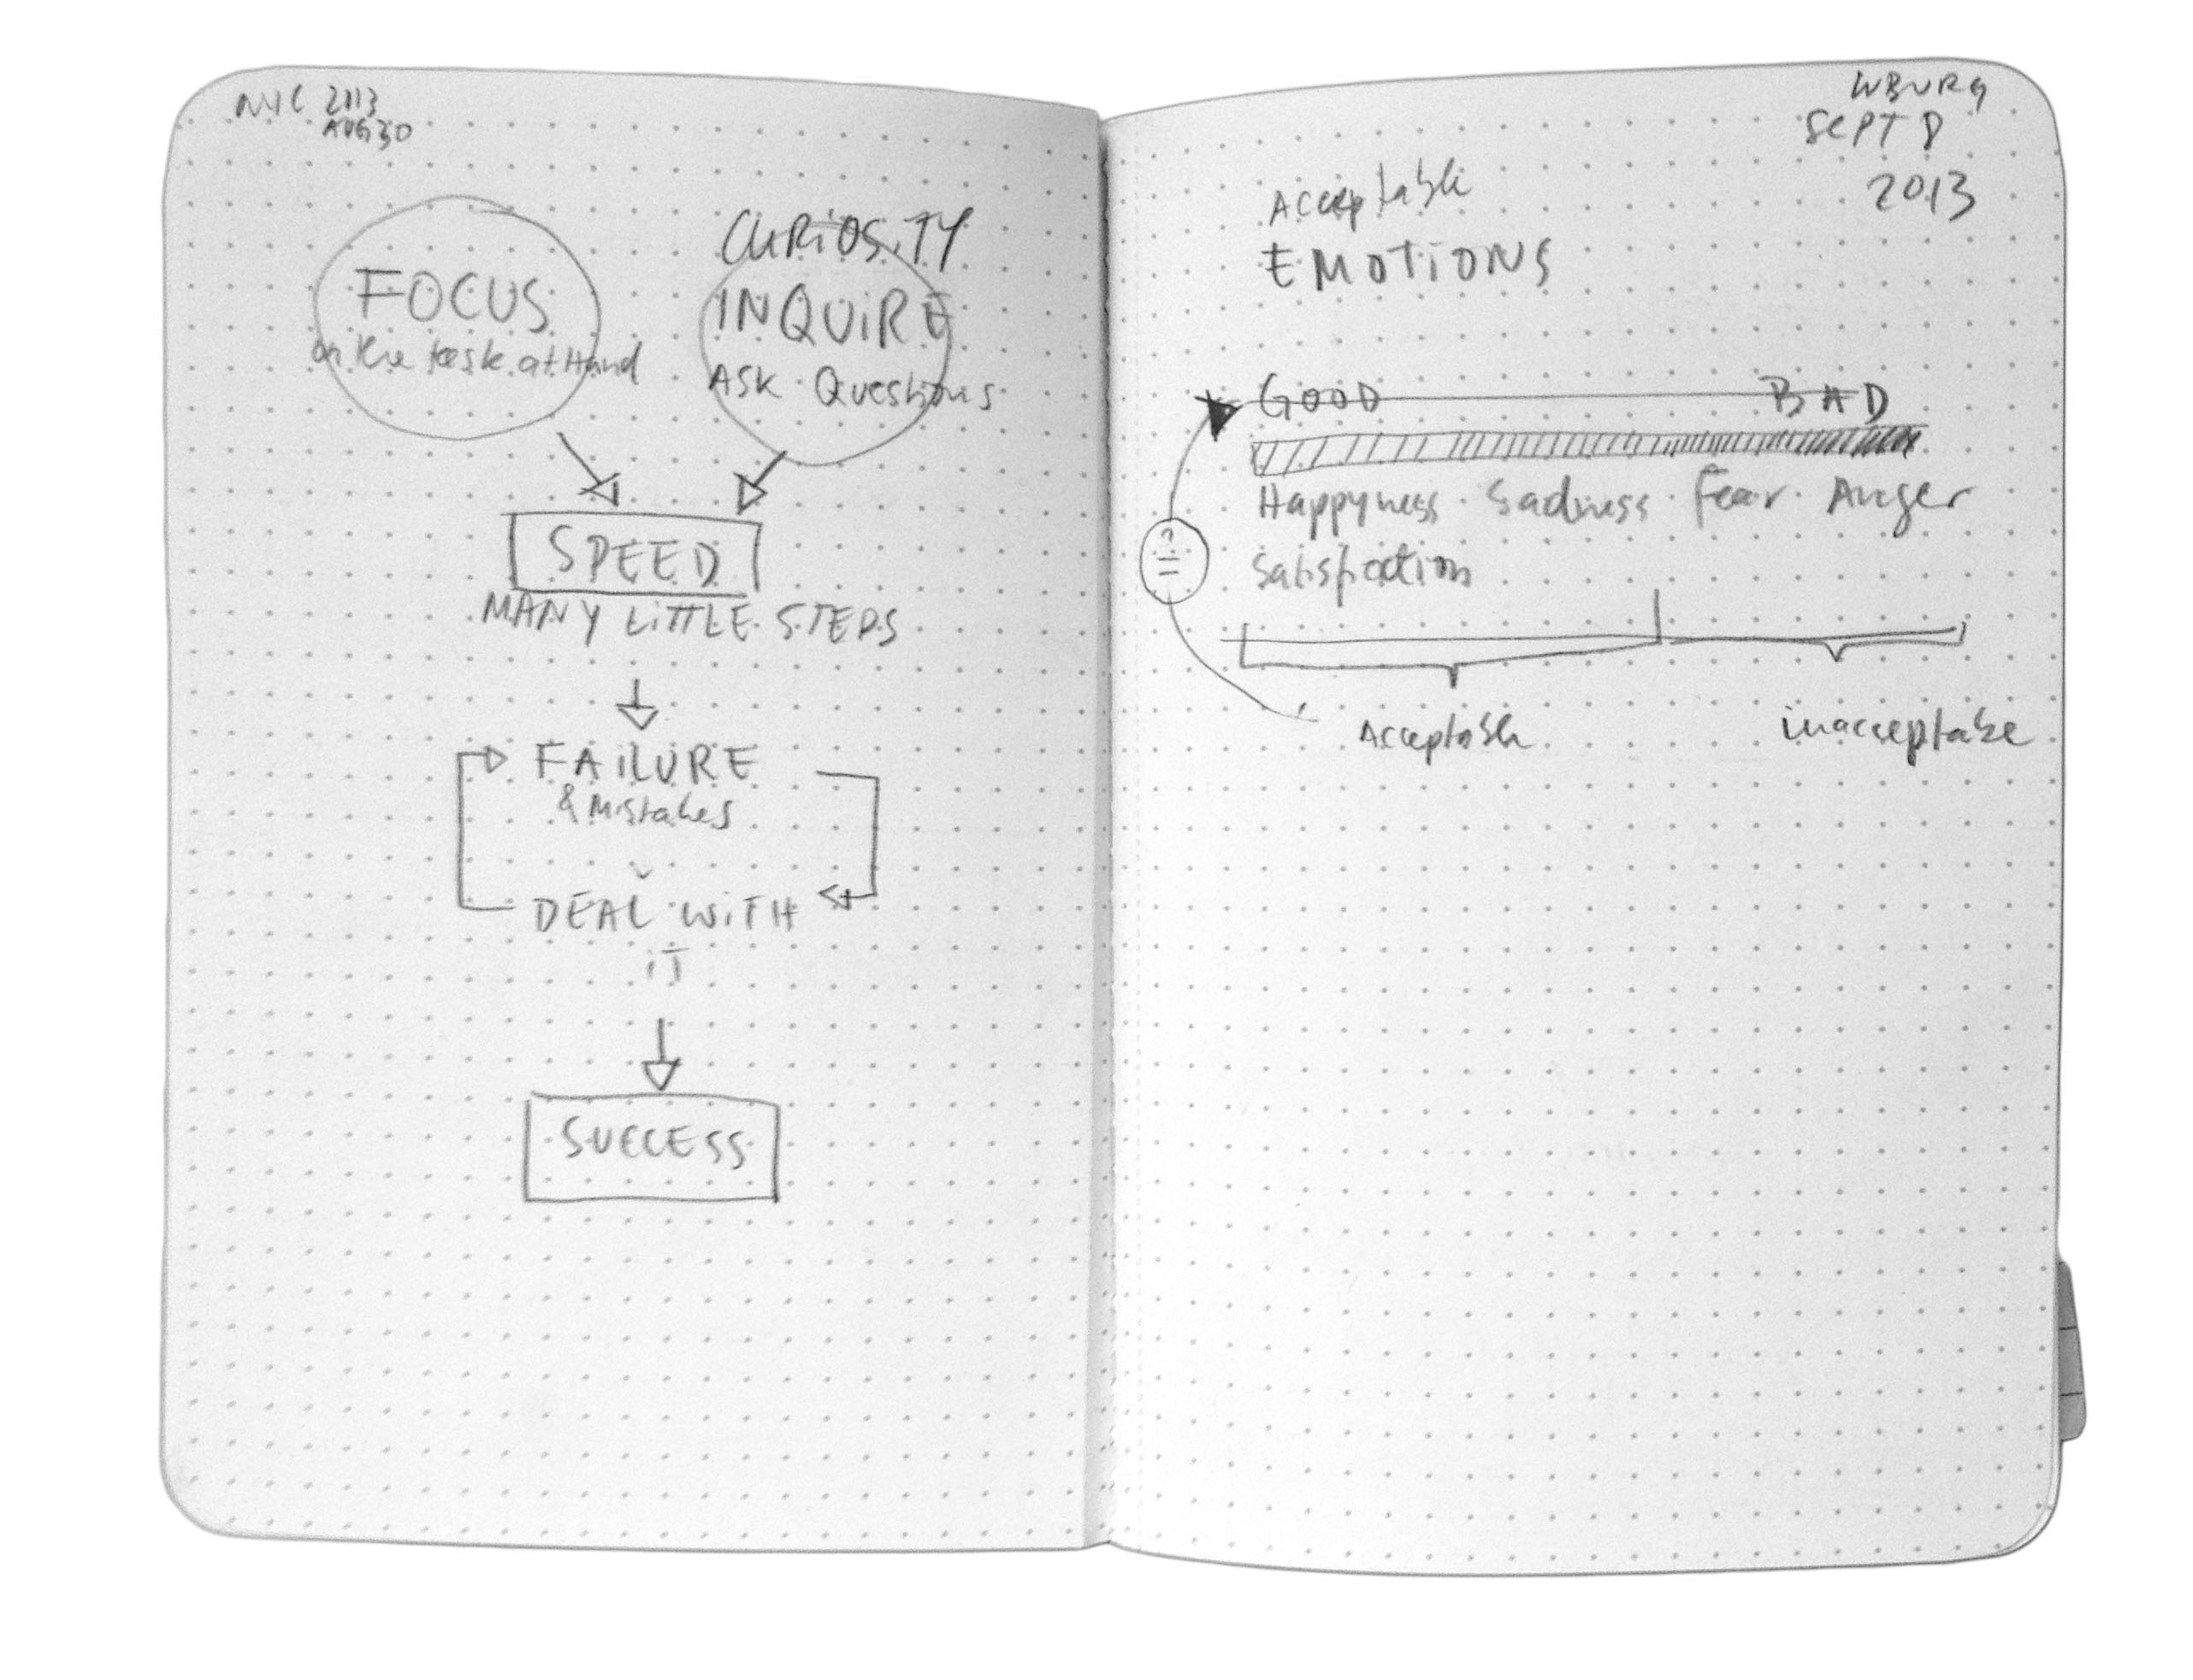 NYC 2013
AUG 30
FOCUS
on the task at Hand
CURiOSiTY
INQUiRE
ASK Questions
SPEED
MANY LiTTLE STEPS
FAiLURE
& Mistakes
DEAL WiTH
iT
SUCCESS
WBURG
SEPT 8
2013
Acceptable
EMOTiONS
GOOD BAD
Happyness Sadness Fear Anger
Satisfaction
?
=
Acceptable inacceptabe